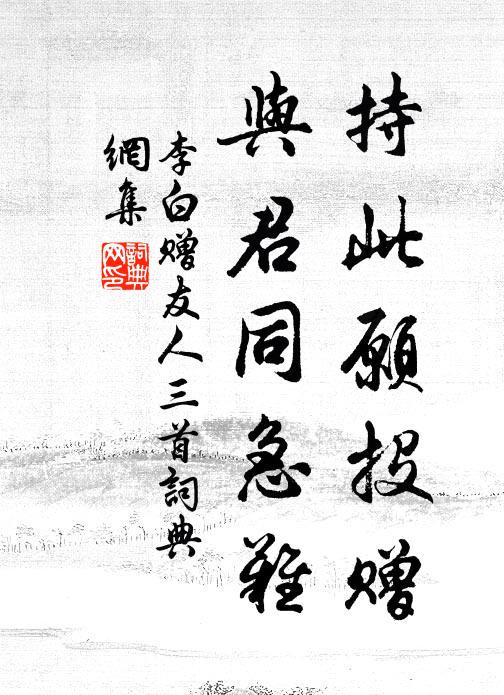 持此願投贈
與君同急難
李白贈友人三首詞典
網集
詞典網印